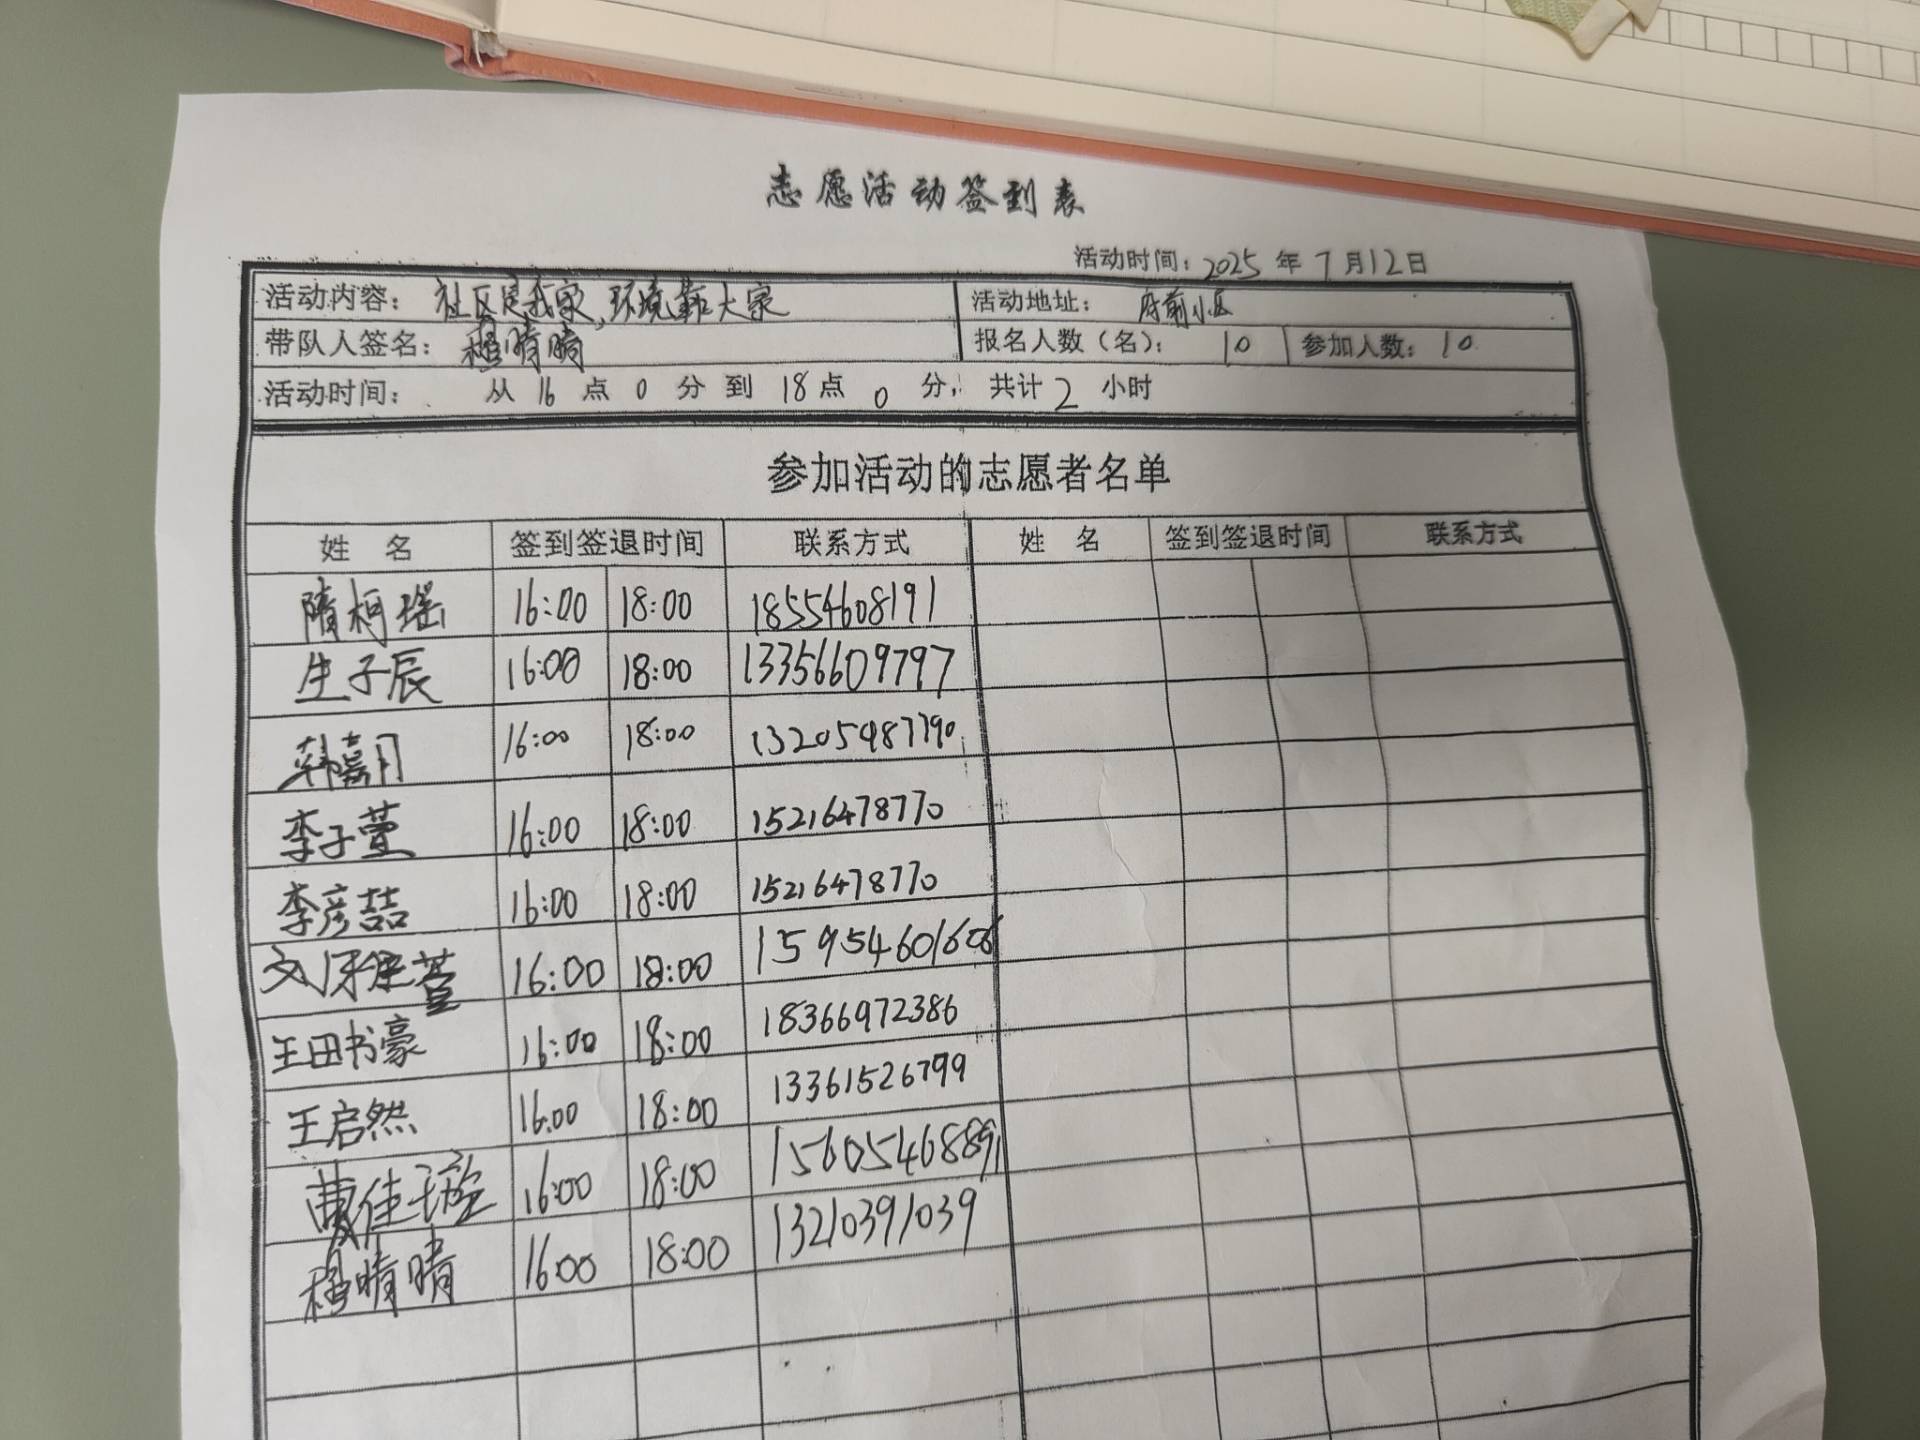 志愿活动签到表
活动时间：2025年7月12日
活动内容：社区是我家,环境靠大家 活动地址：府前小区
带队人签名：程晴晴 报名人数（名）：10 参加人数：10
活动时间：从16点0分到18点0分，共计2小时
参加活动的志愿者名单
姓 名 签到签退时间 联系方式 姓 名 签到签退时间 联系方式
隋柯瑶 16:00 18:00 18554608191
生子辰 16:00 18:00 13356609797
韩嘉月 16:00 18:00 13205487790
李子萱 16:00 18:00 15216478770
李彦喆 16:00 18:00 15216478770
16:00 18:00
王田书豪 16:00 18:00 18366972386
王启然 16:00 18:00 13361526799
曹佳璇 16:00 18:00 15605468891
程晴晴 16:00 18:00 13210391039